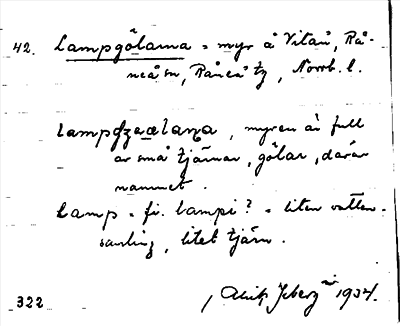 42. Lampgölarna = myr å Vitån, Rå-
neå sn, Råneå tg, Norrb. l.
myren är full
av små tjärnar, gölar, därav
namnet.
Lamp = fi. lampi? = liten vatten-
samling, litet tjärn.
322 1934.